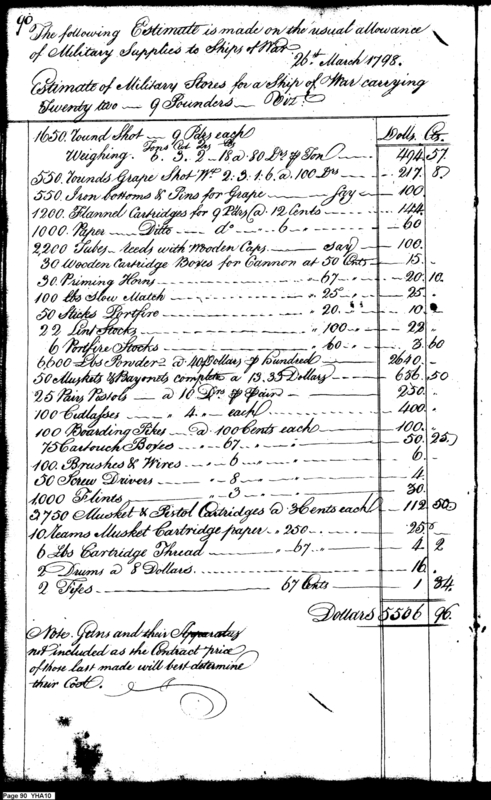 90
The following Estimate is made on the usual allowance
of Military Supplies to Ships of War
26th March 1798.
Estimate of Military Stores for a Ship of War carrying
Twenty two — 9 Pounders — Vizt
Dolls. Cts.
1650. round Shot — 9 Pdrs each
Tons Cwt Qrs lbs
Weighing. 6. 3. 2 - 18 a 80 Drs p Ton 494. 57.
550. rounds Grape Shot Wg 2. 3. 1. 6. a 100 Drs 217. 8
550 Iron bottoms & Pins for Grape — say 100.
1200. Flannel Cartridges for 9 Pdrs a 12 Cents 144.
1000. Paper — Ditto do 6 60
2200 Tubes — reeds with Wooden Caps. — say 100.
30 Wooden Cartridge Boxes for Cannon at 50 Cents 15.
30. Priming Horns " 67 " 20. 10.
100 Lbs Slow Match " 25 " 25.
50 Sticks Portfire " 20 " 10.
22 Lint Stocks " 100 " 22
6 Portfire Stocks " 60 " 3. 60
6600 Lbs Powder a 40 Dollars p hundred 2640.
50 Muskets & Bayonets complete a 13.35 Dollars 686. 50
25 Pairs Pistols — a 10 Drs p Pair 250.
100 Cutlasses " 4. " each 400.
100 Boarding Pikes a 100 Cents each 100.
75 Cartouch Boxes " 67. " 50. 25.
100. Brushes & Wires " 6 " 6.
50 Screw Drivers " 8 " 4.
1000 Flints " 3 " 30.
3750 Musket & Pistol Cartridges a 3 Cents each 112. 50.
10 reams Musket Cartridge paper " 250 25
6 Lbs Cartridge Thread " 67 " 4. 2
2 Drums a 8 Dollars 16.
2 Fifes 67 Cents 1 34.
Dollars 5506 96.
Note. Guns and their Apparatus
not included as the Contract price
of those last made will best determine
their Cost.
Page 90 YHA10